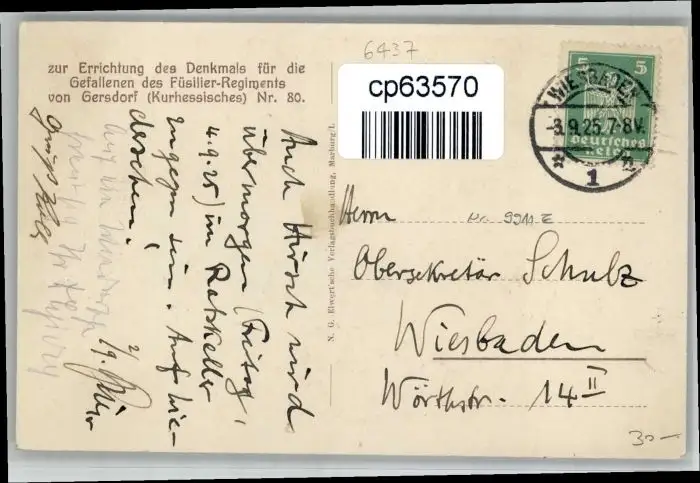 6437
zur Errichtung des Denkmals für die
Gefallenen des Füsilier-Regiments
von Gersdorf (Kurhessisches) Nr. 80.
cp63570
5 5
Deutsches Reich
WIESBADEN
-3.9.25.7-8V.
* 1
N. G. Elwert'sche Verlagsbuchhandlung, Marburg/L.
Auch Hirsch wird
übermorgen (Freitag,
4.9.25) im Ratskeller
zugegen sein. Auf Wie-
dersehen!
2/9.
Herrn
Obersekretär Schulz
Wiesbaden
Wörthstr. 14 II
30-